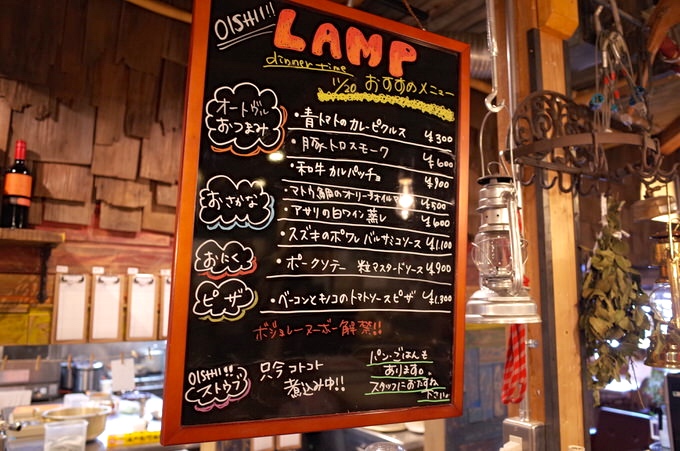 OISHI!!!
LAMP
dinner time
11/20 おすすめメニュー
オードヴル
おつまみ
・青トマトのカレーピクルス ¥300
・豚トロスモーク ¥600
・和牛カルパッチョ ¥900
おさかな
・マトウ鯛のオリーブオイル ¥500
・アサリの白ワイン蒸し ¥600
・スズキのポワレ バルサミコソース ¥1,100
おにく
・ポークソテー 粒マスタードソース ¥900
ピザ
・ベーコンとキノコのトマトソースピザ ¥1,300
ボジョレーヌーボー解禁!!
OISHI!!
ストウブ
只今コトコト
煮込み中!!
パン・ごはんも
あります。
スタッフにおたずね
下さい。